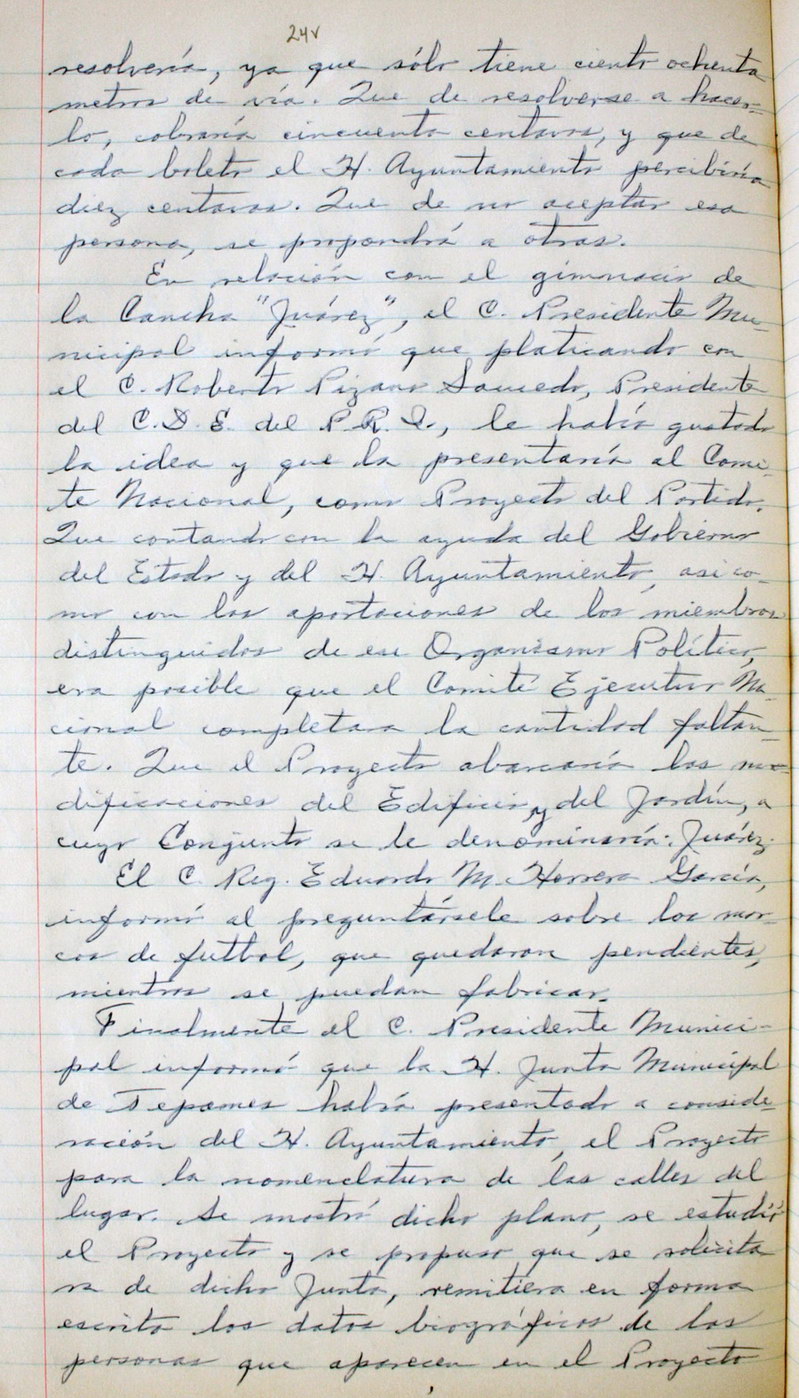 24v
resolvería, ya que sólo tiene ciento ochenta
metros de vía. Que de resolverse a hacer-
lo, cobraría cincuenta centavos, y que de
cada boleto el H. Ayuntamiento percibiría
diez centavos. Que de no aceptar esa
persona, se propondrá a otras.
En relación con el gimnacio de
la Cancha "Juárez", el C. Presidente Mu-
nicipal informó que platicando con
el C. Roberto Pizano Saucedo, Presidente
del C.D.E. del P.R.I., le había gustado
la idea y que la presentaría al Comi-
te Nacional, como Proyecto del Partido.
Que contando con la ayuda del Gobierno
del Estado y del H. Ayuntamiento, asi co-
mo con las aportaciones de los miembros
distinguidos de ese Organismo Político,
era posible que el Comité Ejecutivo Na-
cional completara la cantidad faltan-
te. Que el Proyecto abarcaría las mo-
dificaciones del Edificio, y del Jardín, a
cuyo Conjunto se le denominaría: Juárez.
El C. Reg. Eduardo M. Herrera García,
informó al preguntársele sobre los mar-
cos de futbol, que quedaron pendientes,
mientras se puedan fabricar.
Finalmente el C. Presidente Munici-
pal informó que la H. Junta Municipal
de Tepames había presentado a conside-
ración del H. Ayuntamiento, el Proyecto
para la nomenclatura de las calles del
lugar. Se mostró dicho plano, se estudió
el Proyecto y se propuso que se solicita
ra de dicha Junta, remitiera en forma
escrita los datos biográficos de las
personas que aparecen en el Proyecto